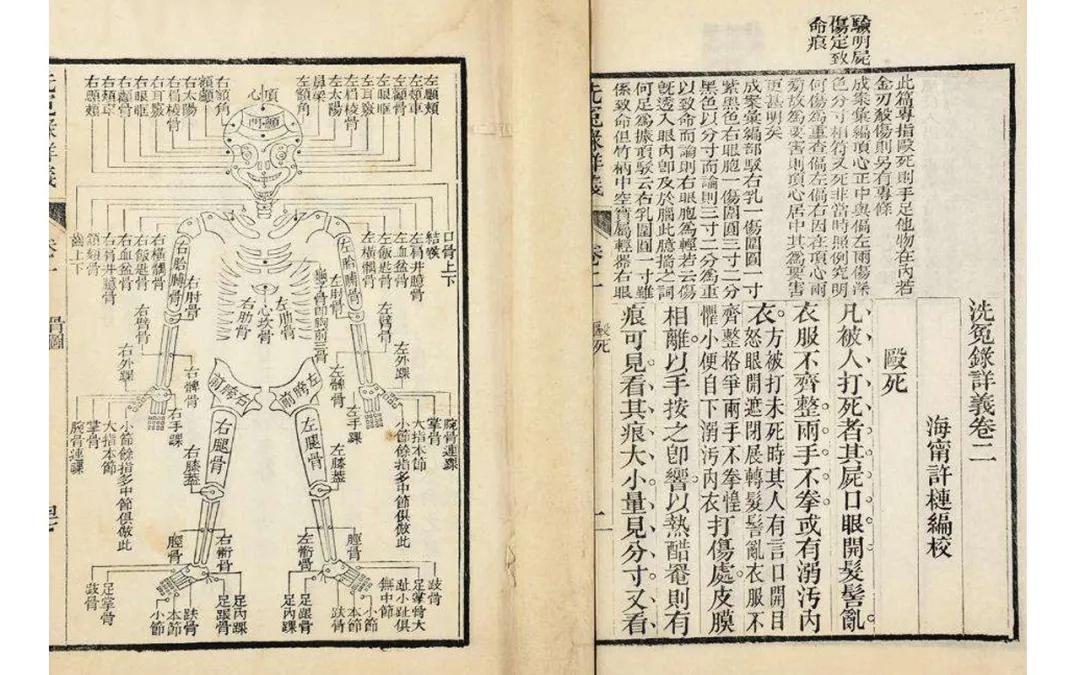 驗明屍
傷定致
命痕
此篇專指毆死則手足他物在內若
金刃殺傷則另有專條
成案彙編頂心正中與偏左兩傷深
色分寸相符又死非當時照例究明
何傷爲重查偏左偏右因在頂心兩
爲要害則頂心居中其爲要害
更甚明矣
成案彙編部駁右乳一傷圍圓一寸
紫黑色右眼胞一傷圍圓三寸二分
黑色以分寸而論則三寸二分爲重
以致命而論則右眼胞爲輕若云傷
旣透入眼內卽及於腦此臆揣之詞
何足爲據頂駁云右乳圍圓一寸雖
係致命但竹柄中空實屬輕器右眼
洗冤錄詳義卷二
海甯許槤編校
毆死
凡被人打死者其屍口眼開髮髻亂
衣服不齊整兩手不拳或有溺汚內
衣。方被打未死時其人有言口開目
怒眼開遮閉展轉髮髻亂衣服不
齊整格爭兩手不拳惶
懼小便自下溺汚內衣打傷處皮膜
相離以手按之卽響以熱醋罨則有
痕可見看其痕大小量見分寸又看
洗冤錄詳義
卷二
毆死
一
左顋頰
左頰車
左顴骨
左眼眶
左耳竅
左眉棱骨
左太陽
鼻梁
左額角
頂心
顖門
右額角
額顱
右太陽
右眉棱骨
右耳竅
右眼眶
右顴骨
右頰車
右顋頰
口骨上下
結喉
左肩井臆骨
左血盆骨
左飯匙骨
左橫髃骨
左胎膊骨
右胎膊骨
右橫髃骨
右飯匙骨
右血盆骨
右肩井臆骨
頷頦骨
齒上下
左肘骨
右肘骨
左肋骨
心坎骨
右肋骨
左臂骨
右臂骨
左外踝
右外踝
左髀骨
右髀骨
左胯前
右胯前
左手踝
右手踝
腕骨連踝
掌骨
大指本節
小節餘指多中節俱倣此
小節餘指多中節俱倣此
大指本節
掌骨
腕骨連踝
左腿骨
右腿骨
左膝蓋
右膝蓋
脛骨
左䯒骨
右䯒骨
脛骨
歧骨
足掌骨大
趾小趾俱
無中節
小節
本節
趺骨
足跟骨
足內踝
足內踝
足跟骨
趺骨
本節
小節
足掌骨
歧骨
洗冤錄詳義
卷一
骨圖